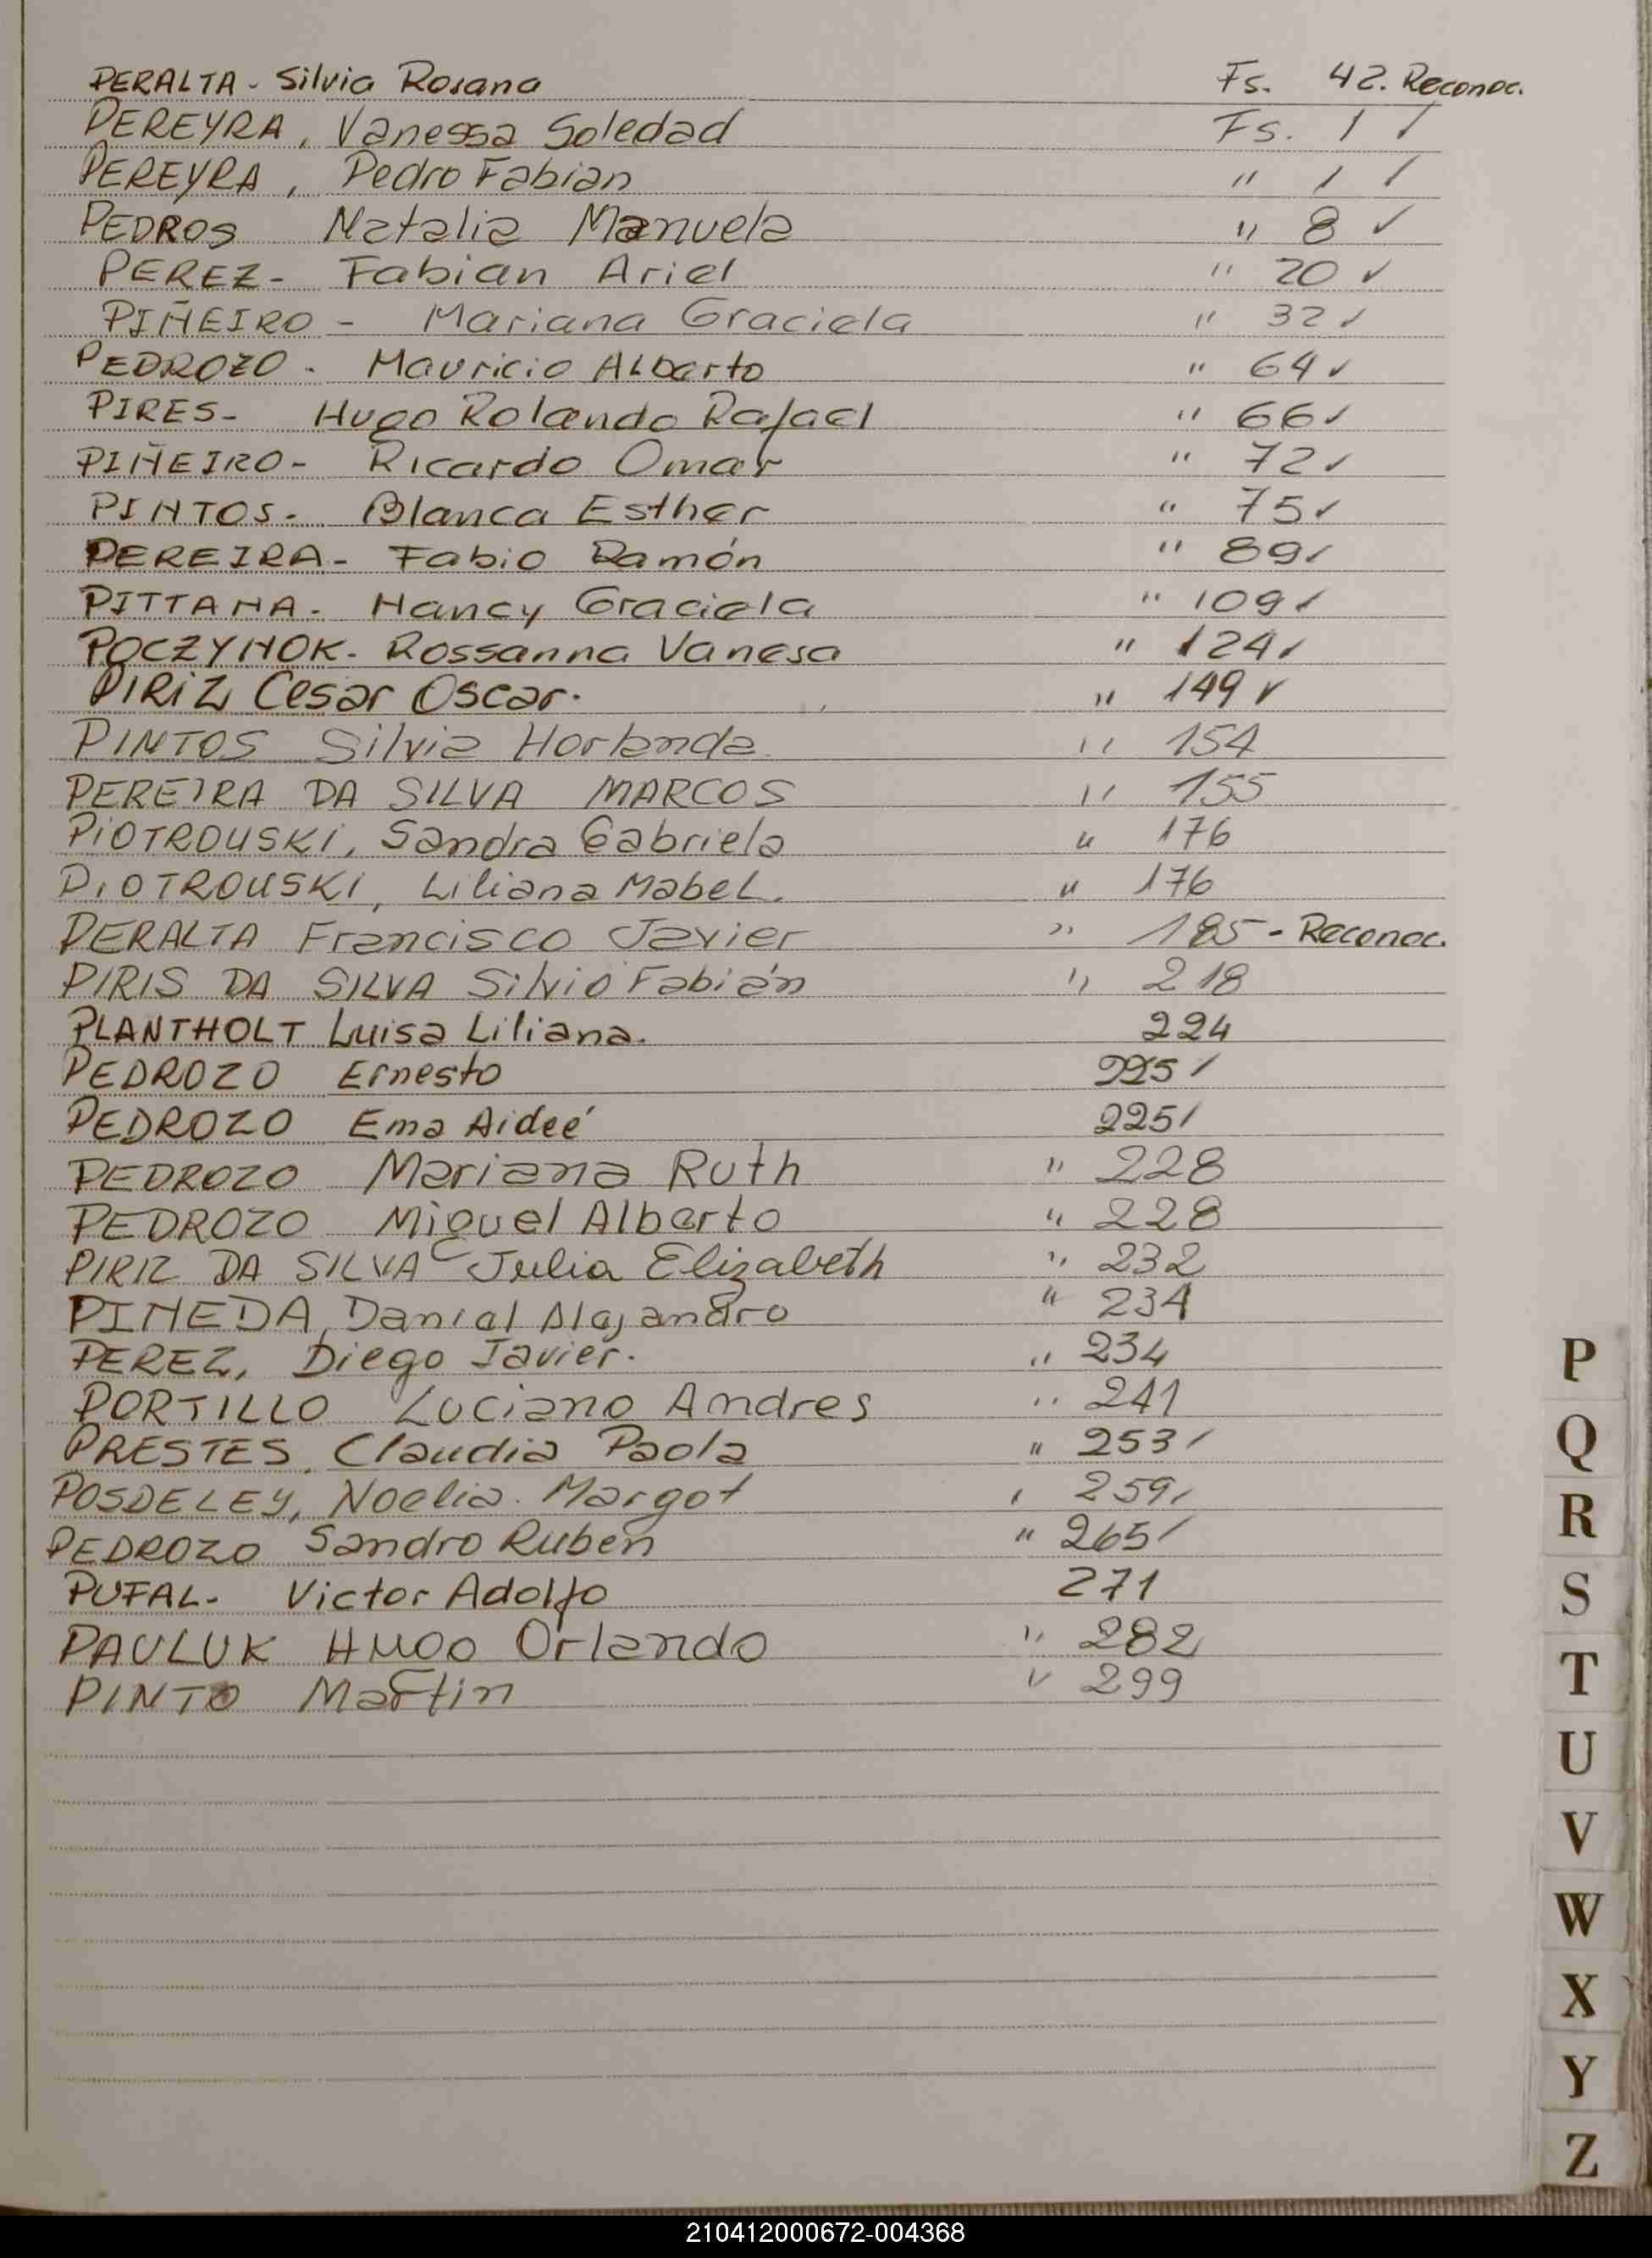 PERALTA - Silvia Rosana Fs. 42. Reconoc.
PEREYRA, Vanessa Soledad Fs. 1 ✓
PEREYRA, Pedro Fabian " 1 ✓
PEDROS Natalia Manuela " 8 ✓
PEREZ - Fabian Ariel " 20 ✓
PIÑEIRO - Mariana Graciela " 32 ✓
PEDROZO - Mauricio Alberto " 64 ✓
PIRES - Hugo Rolando Rafael " 66 ✓
PIÑEIRO - Ricardo Omar " 72 ✓
PINTOS - Blanca Esther " 75 ✓
PEREIRA - Fabio Ramón " 89 ✓
PITTANA - Nancy Graciela " 109 ✓
POCZYNOK - Rossanna Vanesa " 124 ✓
PIRIZ Cesar Oscar. " 149 ✓
PINTOS Silvia Horlanda " 154
PEREIRA DA SILVA MARCOS " 155
PIOTROUSKI, Sandra Gabriela " 176
PIOTROUSKI, Liliana Mabel. " 176
PERALTA Francisco Javier " 185 - Reconoc.
PIRIS DA SILVA Silvio Fabián " 218
PLANTHOLT Luisa Liliana. 224
PEDROZO Ernesto 225 ✓
PEDROZO Ema Aideé 225 ✓
PEDROZO Mariana Ruth " 228
PEDROZO Miguel Alberto " 228
PIRIZ DA SILVA Julia Elizabeth " 232
PINEDA, Daniel Alejandro " 234
PEREZ, Diego Javier. " 234
PORTILLO Luciano Andres " 241
PRESTES, Claudia Paola " 253 ✓
POSDELEY, Noelia Margot ' 259 ✓
PEDROZO Sandro Ruben " 265 ✓
PUFAL - Victor Adolfo 271
PAULUK HUGO Orlando " 282
PINTO Martin " 299
P
Q
R
S
T
U
V
W
X
Y
Z
210412000672-004368